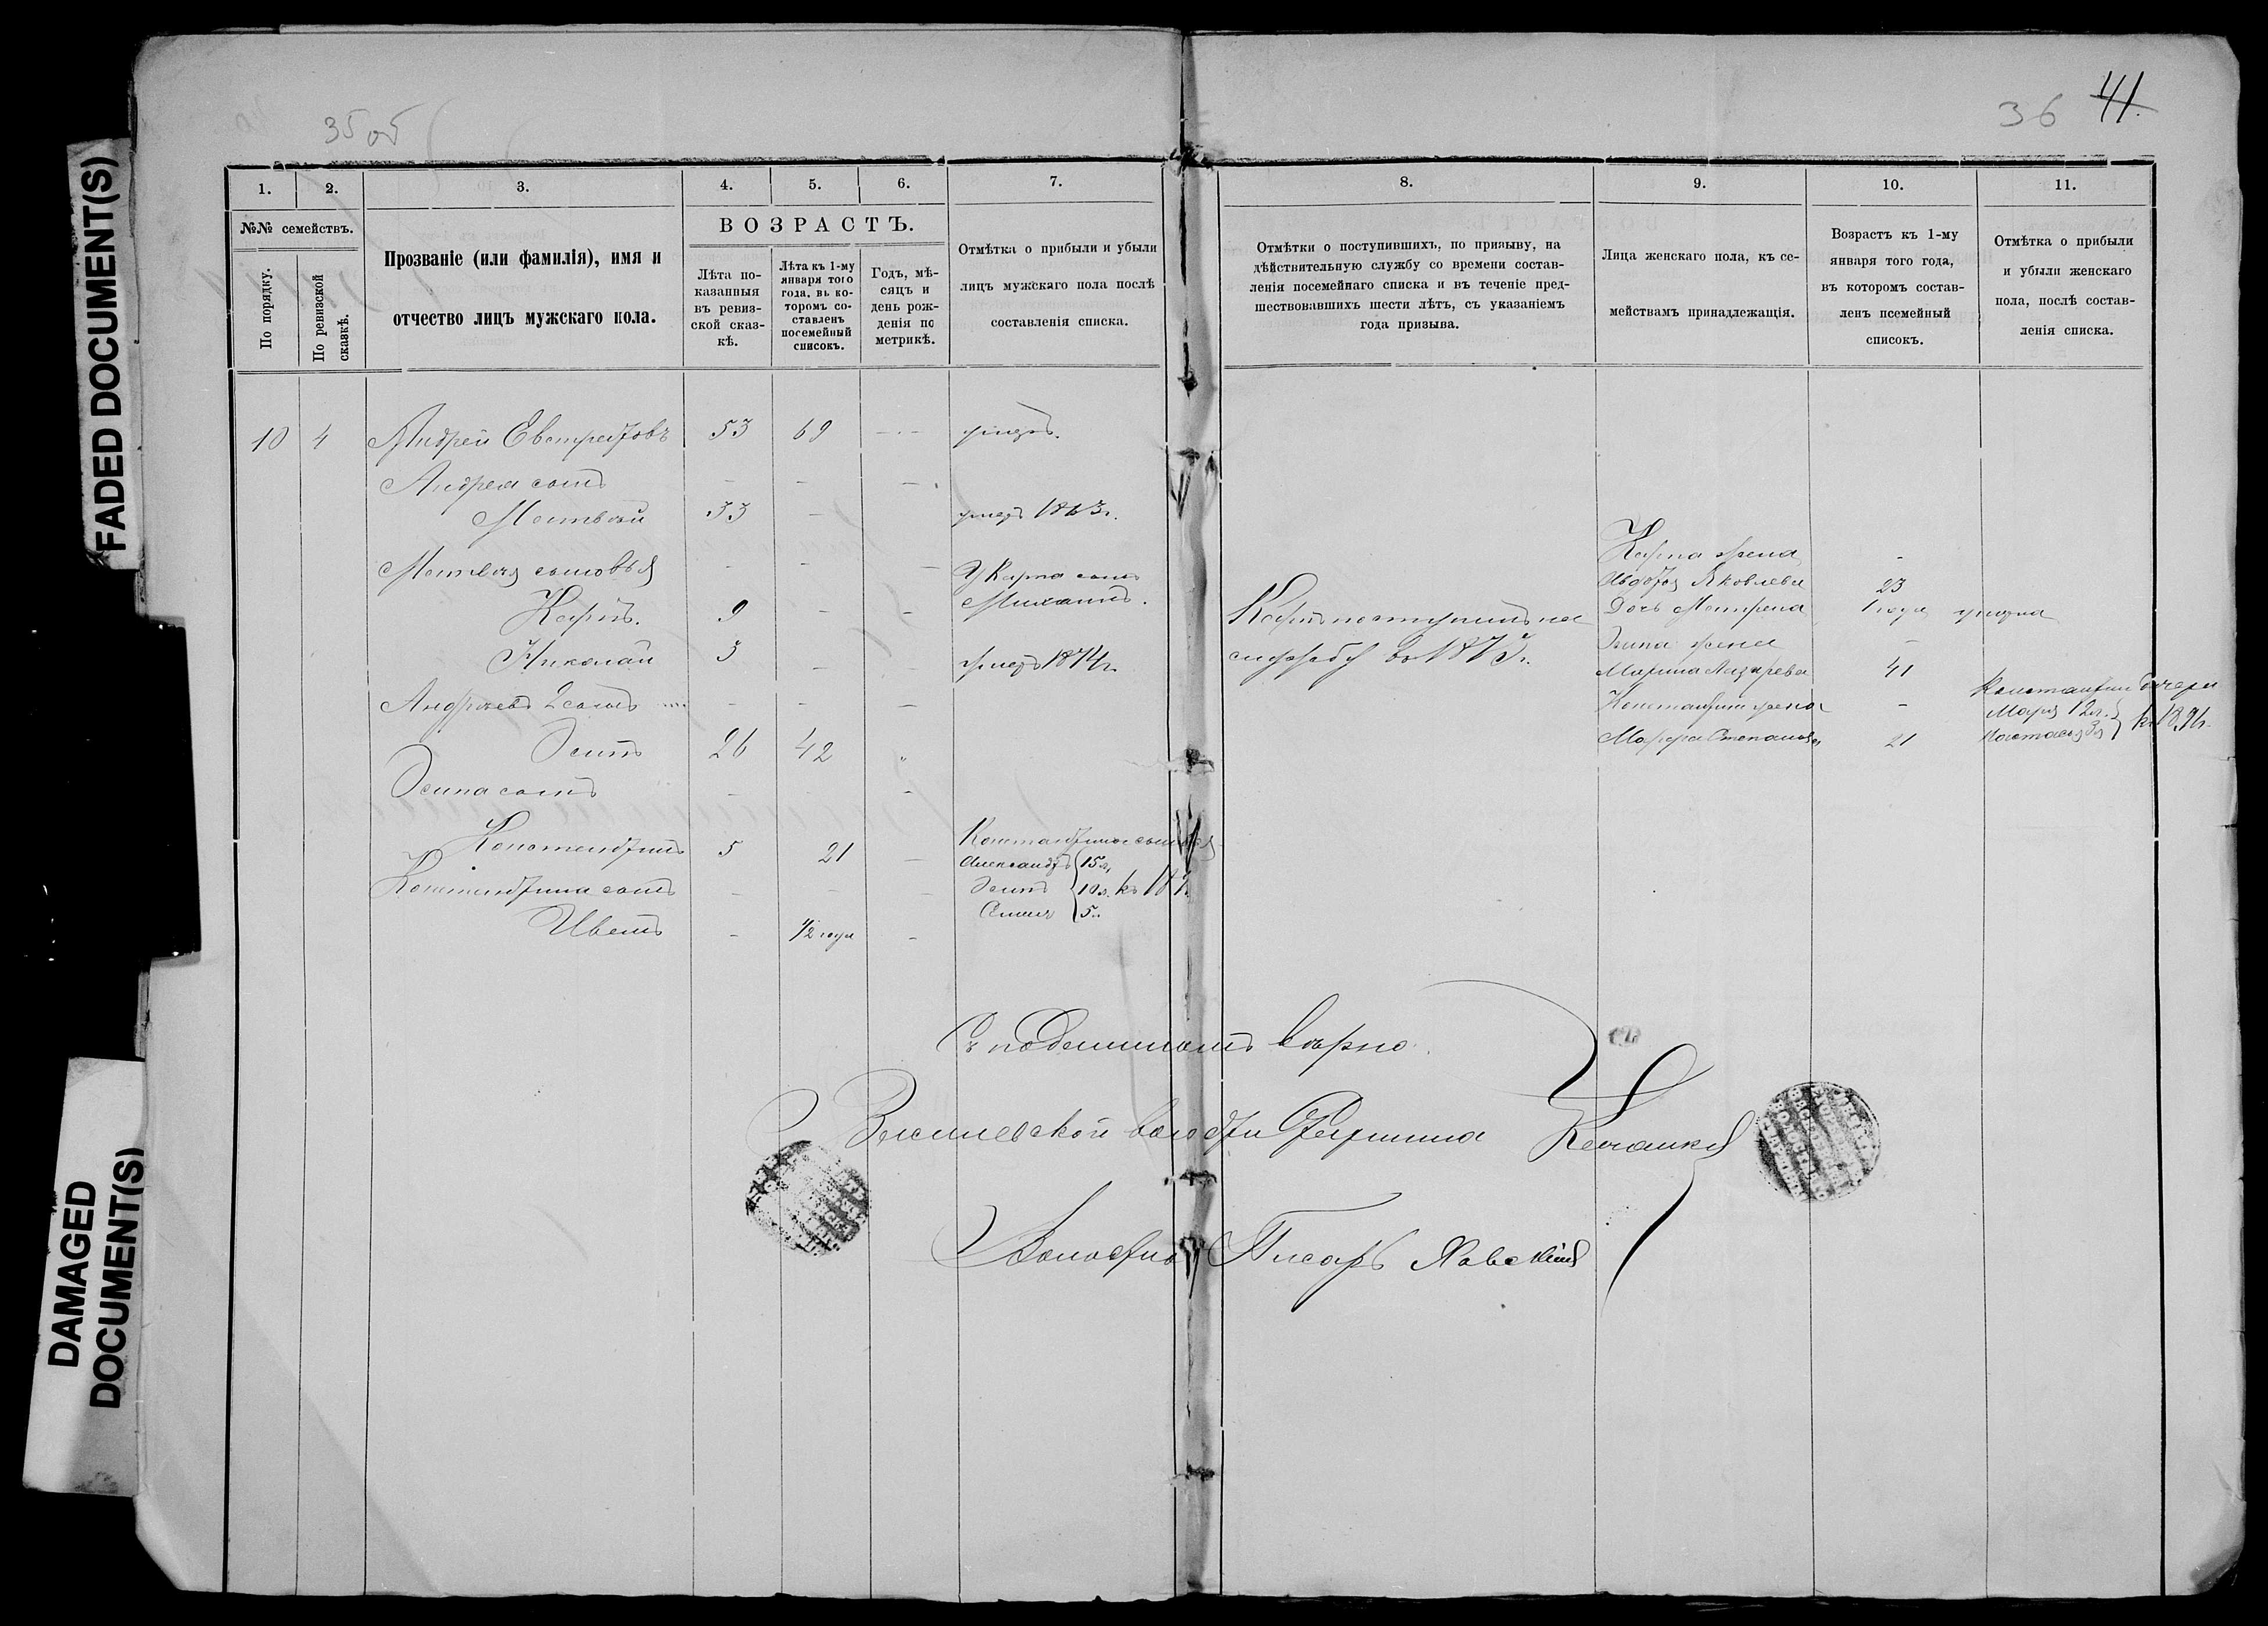 FADED DOCUMENT(S)
DAMAGED
DOCUMENT(S)
35 об
36 41.
1. 2. 3. 4. 5. 6. 7. 8. 9. 10. 11.
№№ семействъ.
По порядку.
По ревизской
сказкѣ.
Прозваніе (или фамилія), имя и
отчество лицъ мужскаго пола.
ВОЗРАСТЪ.
Лѣта по-
казанныя
въ ревиз-
ской сказ-
кѣ.
Лѣта къ 1-му
января того
года, въ ко-
торомъ со-
ставленъ
посемейный
списокъ.
Годъ, мѣ-
сяцъ и
день рож-
денія по
метрикѣ.
Отмѣтка о прибыли и убыли
лицъ мужскаго пола послѣ
составленія списка.
Отмѣтки о поступившихъ, по призыву, на
дѣйствительную службу со времени состав-
ленія посемейнаго списка и въ теченіе пред-
шествовавшихъ шести лѣтъ, съ указаніемъ
года призыва.
Лица женскаго пола, къ се-
мействамъ принадлежащія.
Возрастъ къ 1-му
января того года,
въ которомъ состав-
ленъ псемейный
списокъ.
Отмѣтка о прибыли
и убыли женскаго
пола, послѣ состав-
ленія списка.
10 4 Андрей Евстратовъ 53 69 — умеръ.
Андрея сынъ — — —
Матвѣй 33 — умеръ 1863 г.
Матвѣя сыновья — — —
Карпъ. 9 — —
Николай 3 — — умеръ 1874 г.
Андреевъ 2 сынъ — — —
Осипъ 26 42 "
Осипа сынъ — — —
Константинъ 5 21 —
Константина сынъ — — —
Иванъ — 1/2 года —
У Карпа сынъ
Михаилъ.
Константина сыновья
Александръ 15 л.
Осипъ 10 л. къ
Семенъ 5 л.
Карпъ поступилъ на
службу въ 1875 г.
Карпа жена —
Авдотья Яковлева 23
Дочь Матрена 1 года умерла
Осипа жена —
Марина Лазарева 41
Константина жена —
Марфа Степанова 21
Константина дочери
Марья 12 л.
Настасья 3 л. къ 189
Съ подлиннымъ вѣрно.
волости Старшина
Волостной Писарь